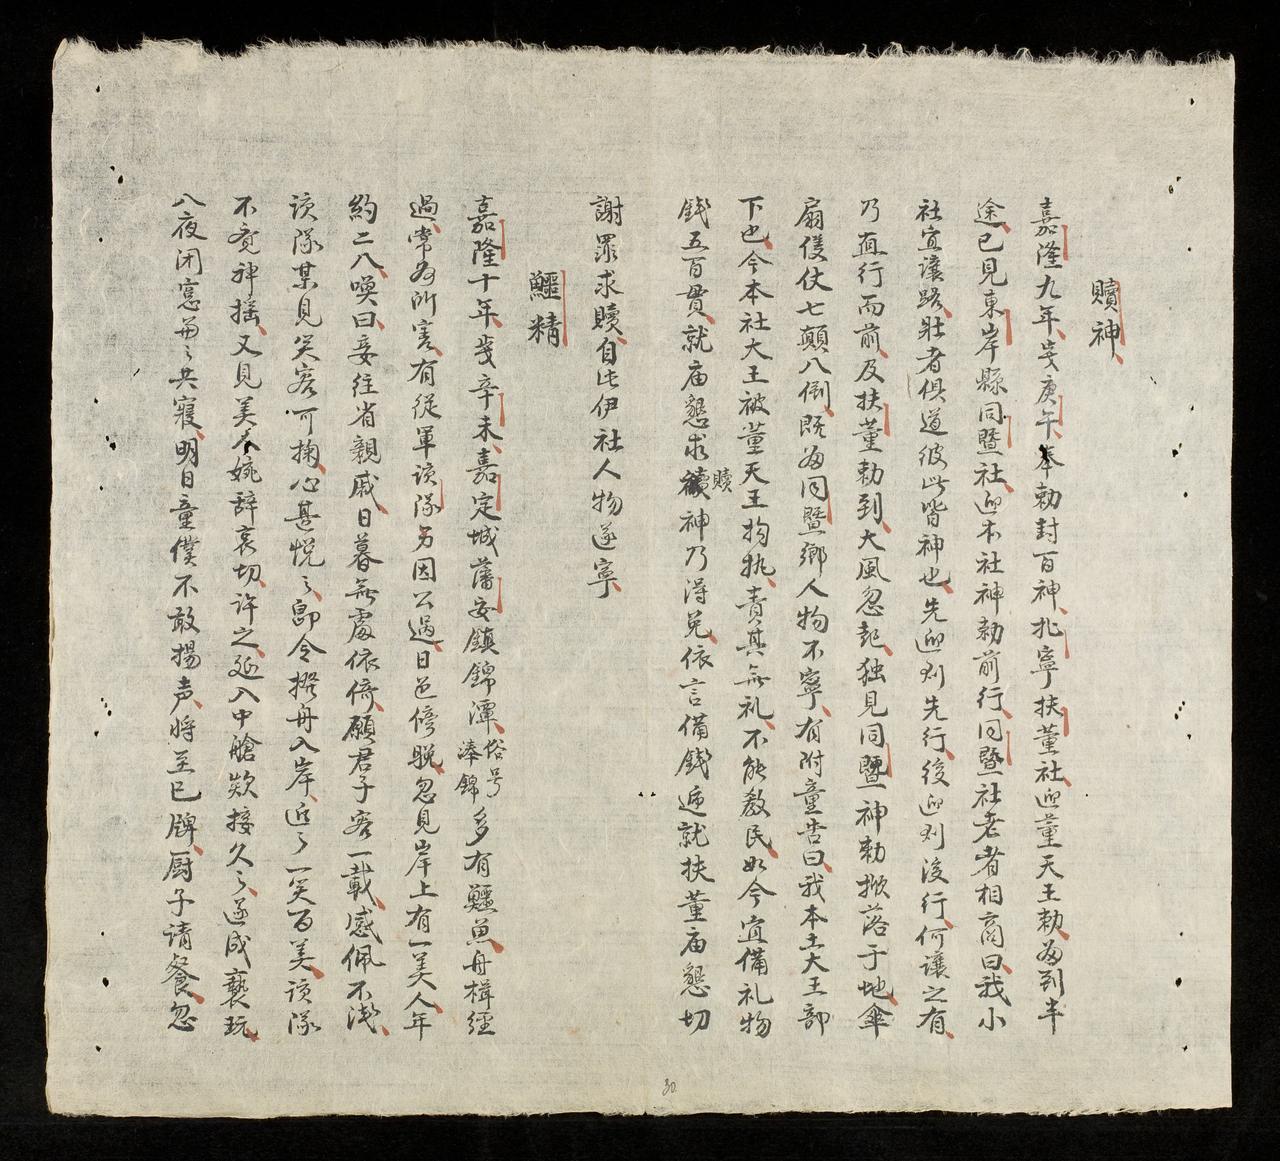 贖神
嘉隆九年歲庚午奉勅封百神扎寧扶董社迎董天王勅為到半
途已見東岸縣同暨社迎本社神勅前行同暨社老者相商曰我小
社宜讓路壯者俱道彼此皆神也先迎則先行後迎則後行何讓之有
乃直行而前及扶董勅到大風忽起独見同暨神勅掀落于地傘
扇僂仗七顛八倒既而同暨鄉人物不寧有附童告曰我本土大王部
下也今本社大王被董天王拘执責其無礼不能教民如今宜備礼物
錢五百貫就庙懇求贖神乃得免依言備錢逓就扶董庙懇切
謝罪求贖自此伊社人物遂寧
鱷精
嘉隆十年歲辛未嘉定城藩安鎮錦潭俗号湊錦多有鱷魚舟楫經
過常為所害有從軍该隊男因公過日色傍晚忽見岸上有一美人年
約二八喚曰妾往省親戚日暮無處依倚願君子容一載感佩不淺
该隊某見笑容可掬心甚悅之即令撥舟入岸近了一笑百美该隊
不覚神搖又見美人婉辞哀切許之延入中艙欵接久之遂成褻玩
八夜闭窓共寢明日童僕不敢揚声將至巳牌厨子请餐忽
30